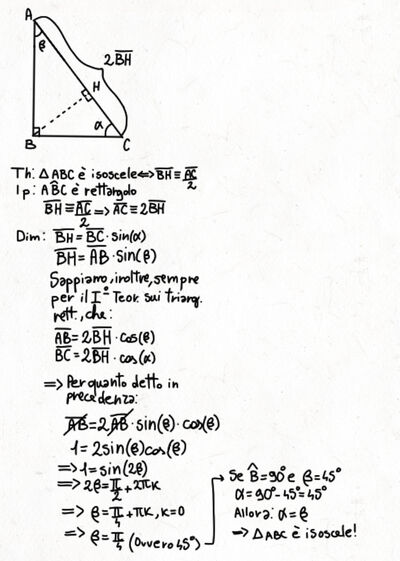 A
β
2B̅H̅
H
α
B
C
Th: △ABC è isoscele ⟺ B̅H̅ ≡ A̅C̅/2
Ip: AB̂C è rettangolo
B̅H̅ ≡ A̅C̅/2 ⟹ A̅C̅ ≡ 2B̅H̅
Dim: B̅H̅ = B̅C̅ · sin(α)
B̅H̅ = A̅B̅ · sin(β)
Sappiamo, inoltre, sempre
per il I° Teor. sui triang.
rett., che:
A̅B̅ = 2B̅H̅ · cos(β)
B̅C̅ = 2B̅H̅ · cos(α)
⟹ Per quanto detto in
precedenza:
A̅B̅ = 2A̅B̅ · sin(β) · cos(β)
1 = 2sin(β)cos(β)
⟹ 1 = sin(2β)
⟹ 2β = π/2 + 2πK
⟹ β = π/4 + πK, K=0
⟹ β = π/4 (Ovvero 45°)
Se B̂ = 90° e β = 45°
α = 90° - 45° = 45°
Allora: α = β
⟹ △ABC è isoscele!